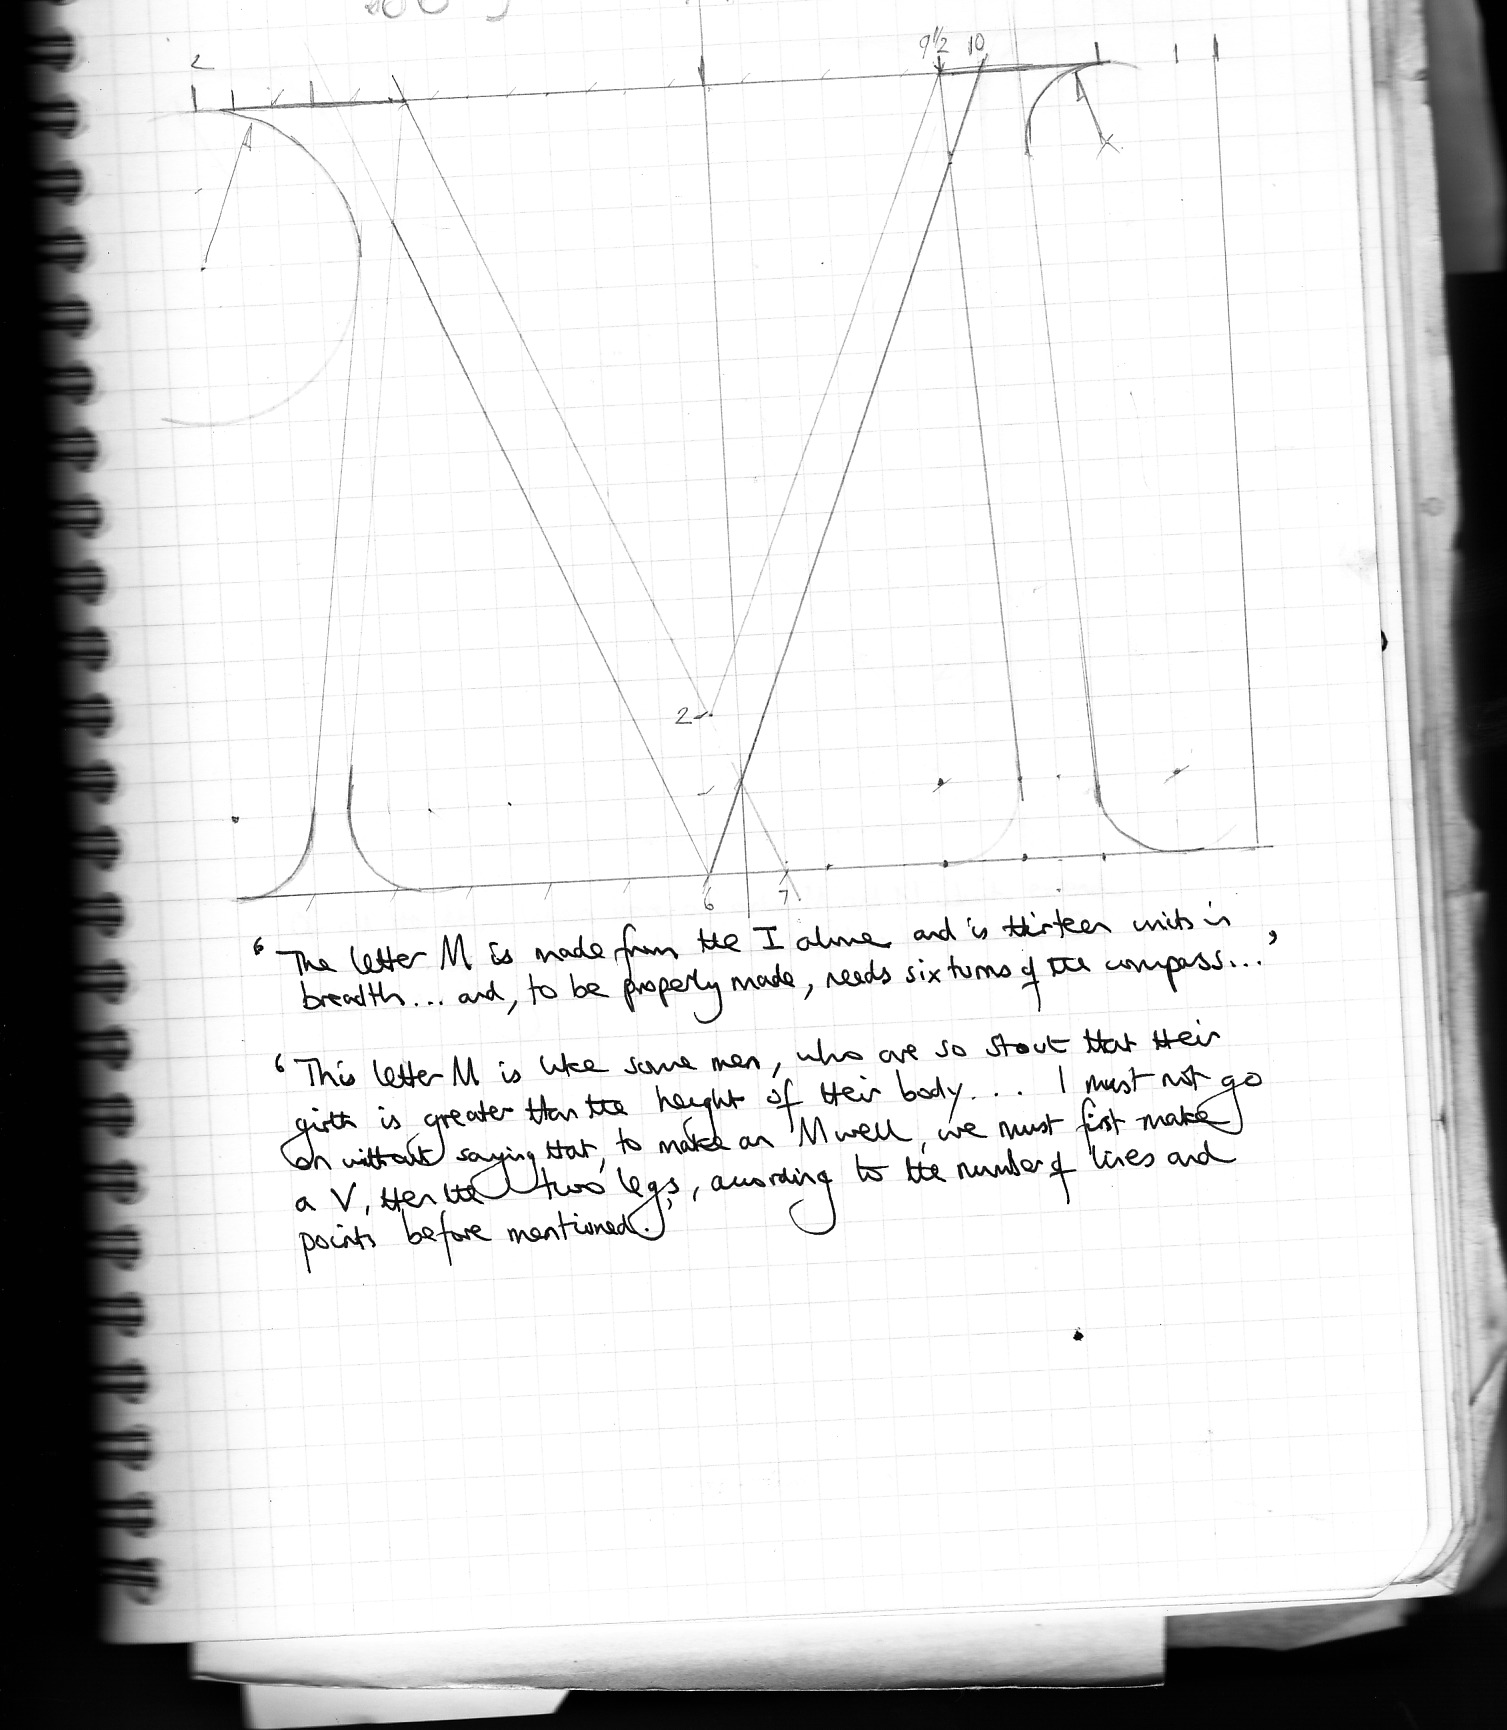 2
9½ 10
2
6 7
‘The letter M is made from the I alone and is thirteen units in
breadth... and, to be properly made, needs six turns of the compass...’
‘This letter M is like some men, who are so stout that their
girth is greater than the height of their body.... I must not go
on without saying that, to make an M well, we must first make
a V, then the two legs, acording to the number of lines and
points before mentioned.’